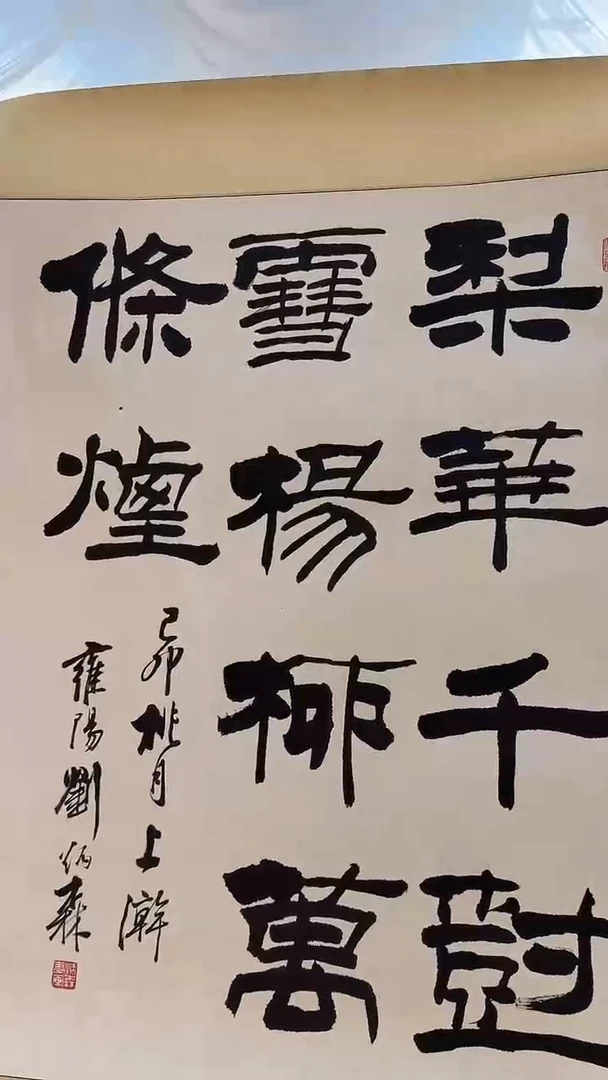 梨華千尌
雪楊柳萬
條煙
己卯桃月上澣
雍陽劉炳森